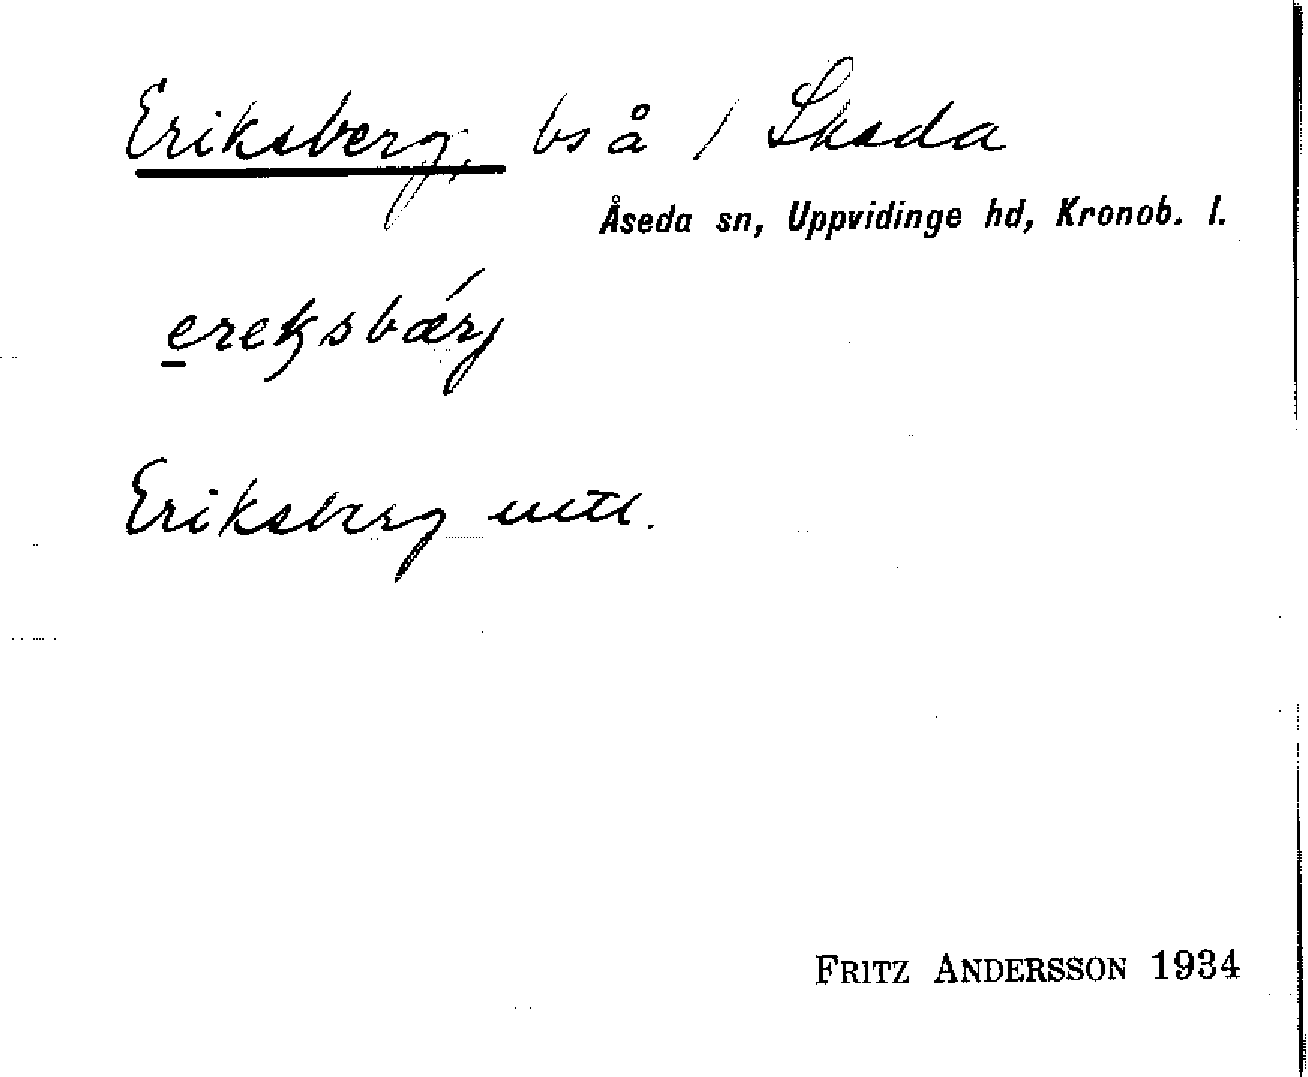 Eriksberg, bs å / Skeda
Åseda sn, Uppvidinge hd, Kronob. l.
ereksbærj
Eriksberg uttl.
FRITZ ANDERSSON 1934